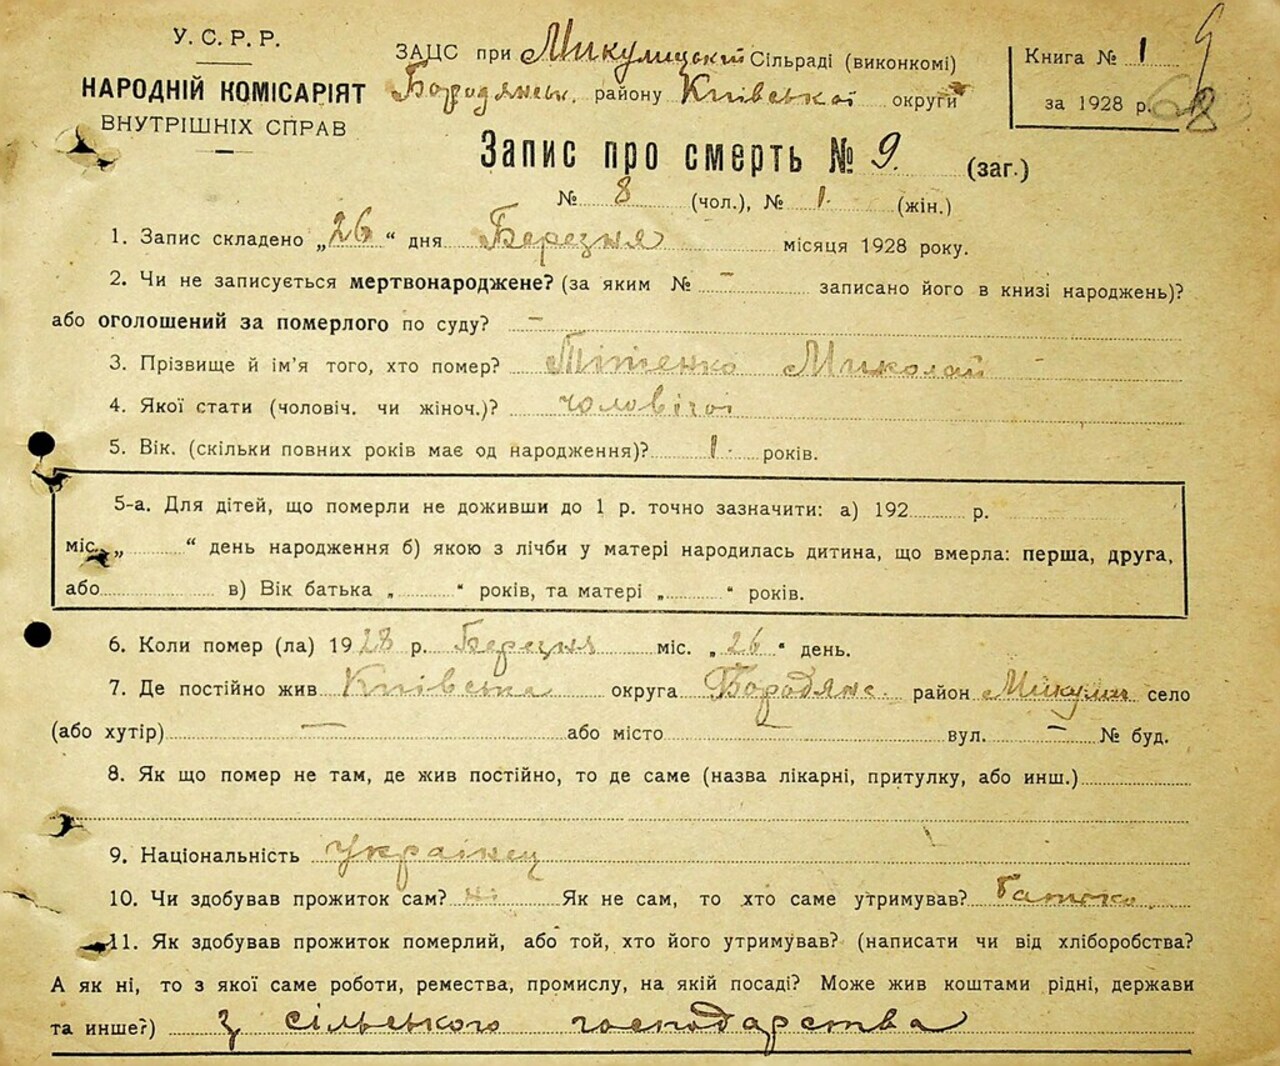 У. С. Р. Р.
НАРОДНІЙ КОМІСАРІЯТ
ВНУТРІШНІХ СПРАВ
ЗАЦС при Микулицькій Сільраді (виконкомі)
Бородянськ. району Київської округи
Книга № 1
за 1928 р.
9
68
Запис про смерть № 9. (заг.)
№ 8 (чол.), № 1. (жін.)
1. Запис складено „26“ дня Березня місяця 1928 року.
2. Чи не записується мертвонароджене? (за яким № – записано його в книзі народжень)?
або оголошений за померлого по суду? –
3. Прізвище й ім'я того, хто помер? Тітенко Миколай
4. Якої стати (чоловіч. чи жіноч.)? чоловічої
5. Вік. (скільки повних років має од народження)? 1. років.
5-а. Для дітей, що померли не доживши до 1 р. точно зазначити: а) 192 р.
міс. „ “ день народження б) якою з лічби у матері народилась дитина, що вмерла: перша, друга,
або в) Вік батька „ “ років, та матері „ “ років.
6. Коли помер (ла) 1928 р. Березня міс. „26“ день.
7. Де постійно жив Київська округа Бородянс. район Микулич село
(або хутір) – або місто – вул. – № буд.
8. Як що помер не там, де жив постійно, то де саме (назва лікарні, притулку, або инш.)
9. Національність українец
10. Чи здобував прожиток сам? ні Як не сам, то хто саме утримував? батько.
11. Як здобував прожиток померлий, або той, хто його утримував? (написати чи від хліборобства?
А як ні, то з якої саме роботи, ремества, промислу, на якій посаді? Може жив коштами рідні, держави
та инше?) з сільського господарства